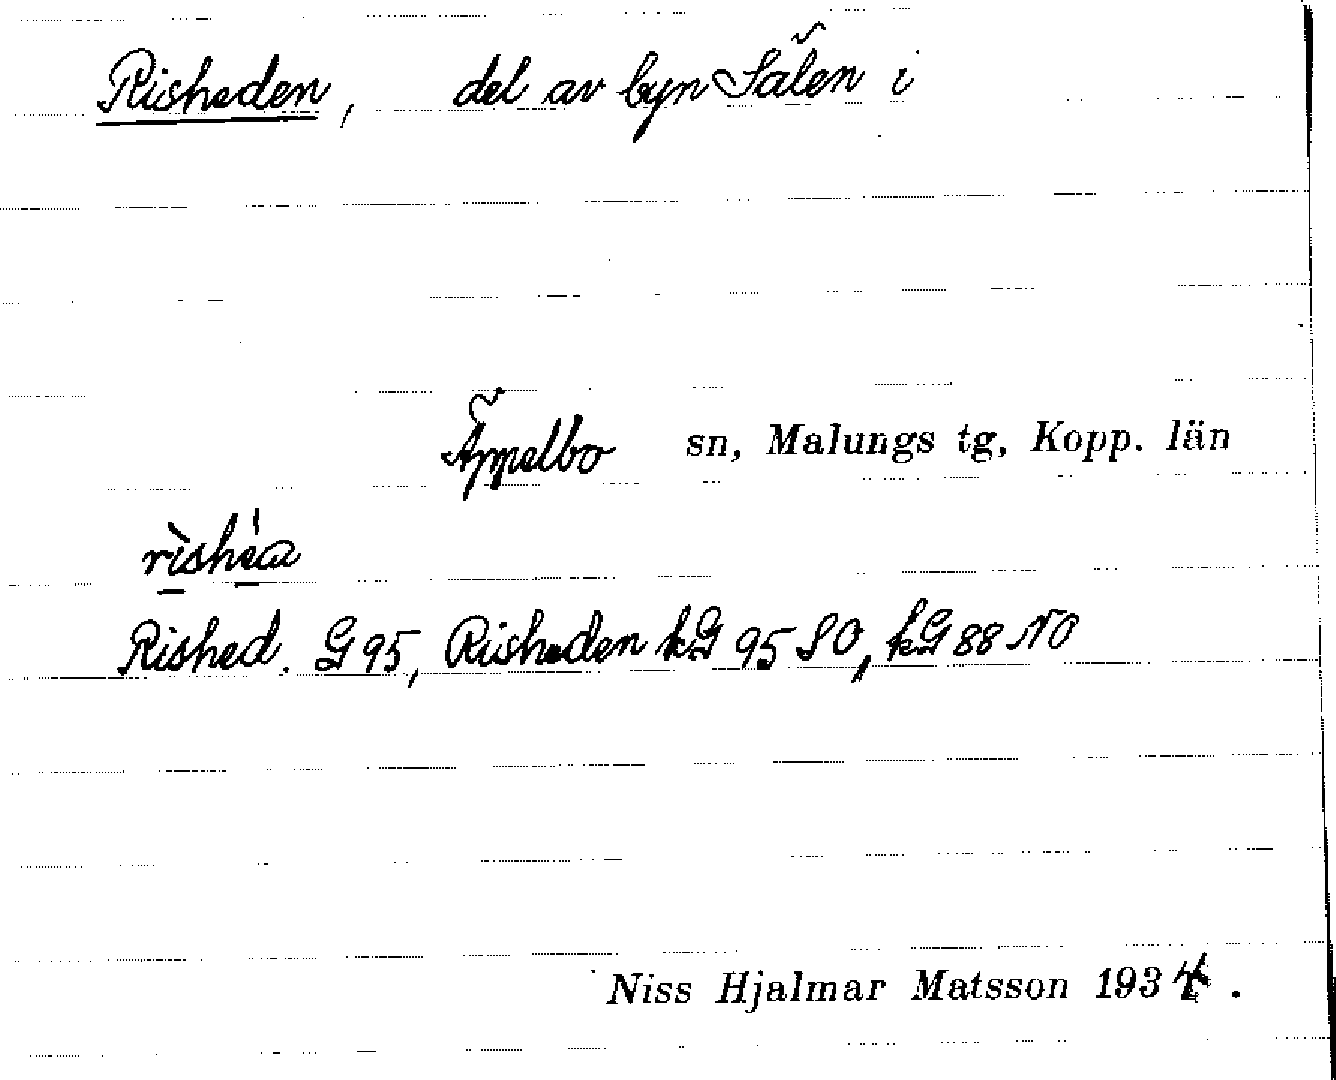 Risheden, del av byn Sälen i
Äppelbo sn, Malungs tg, Kopp. län
rìshéa
Rished. G 95, Risheden kG 95 SO, kG 88 NO
Niss Hjalmar Matsson 1934.